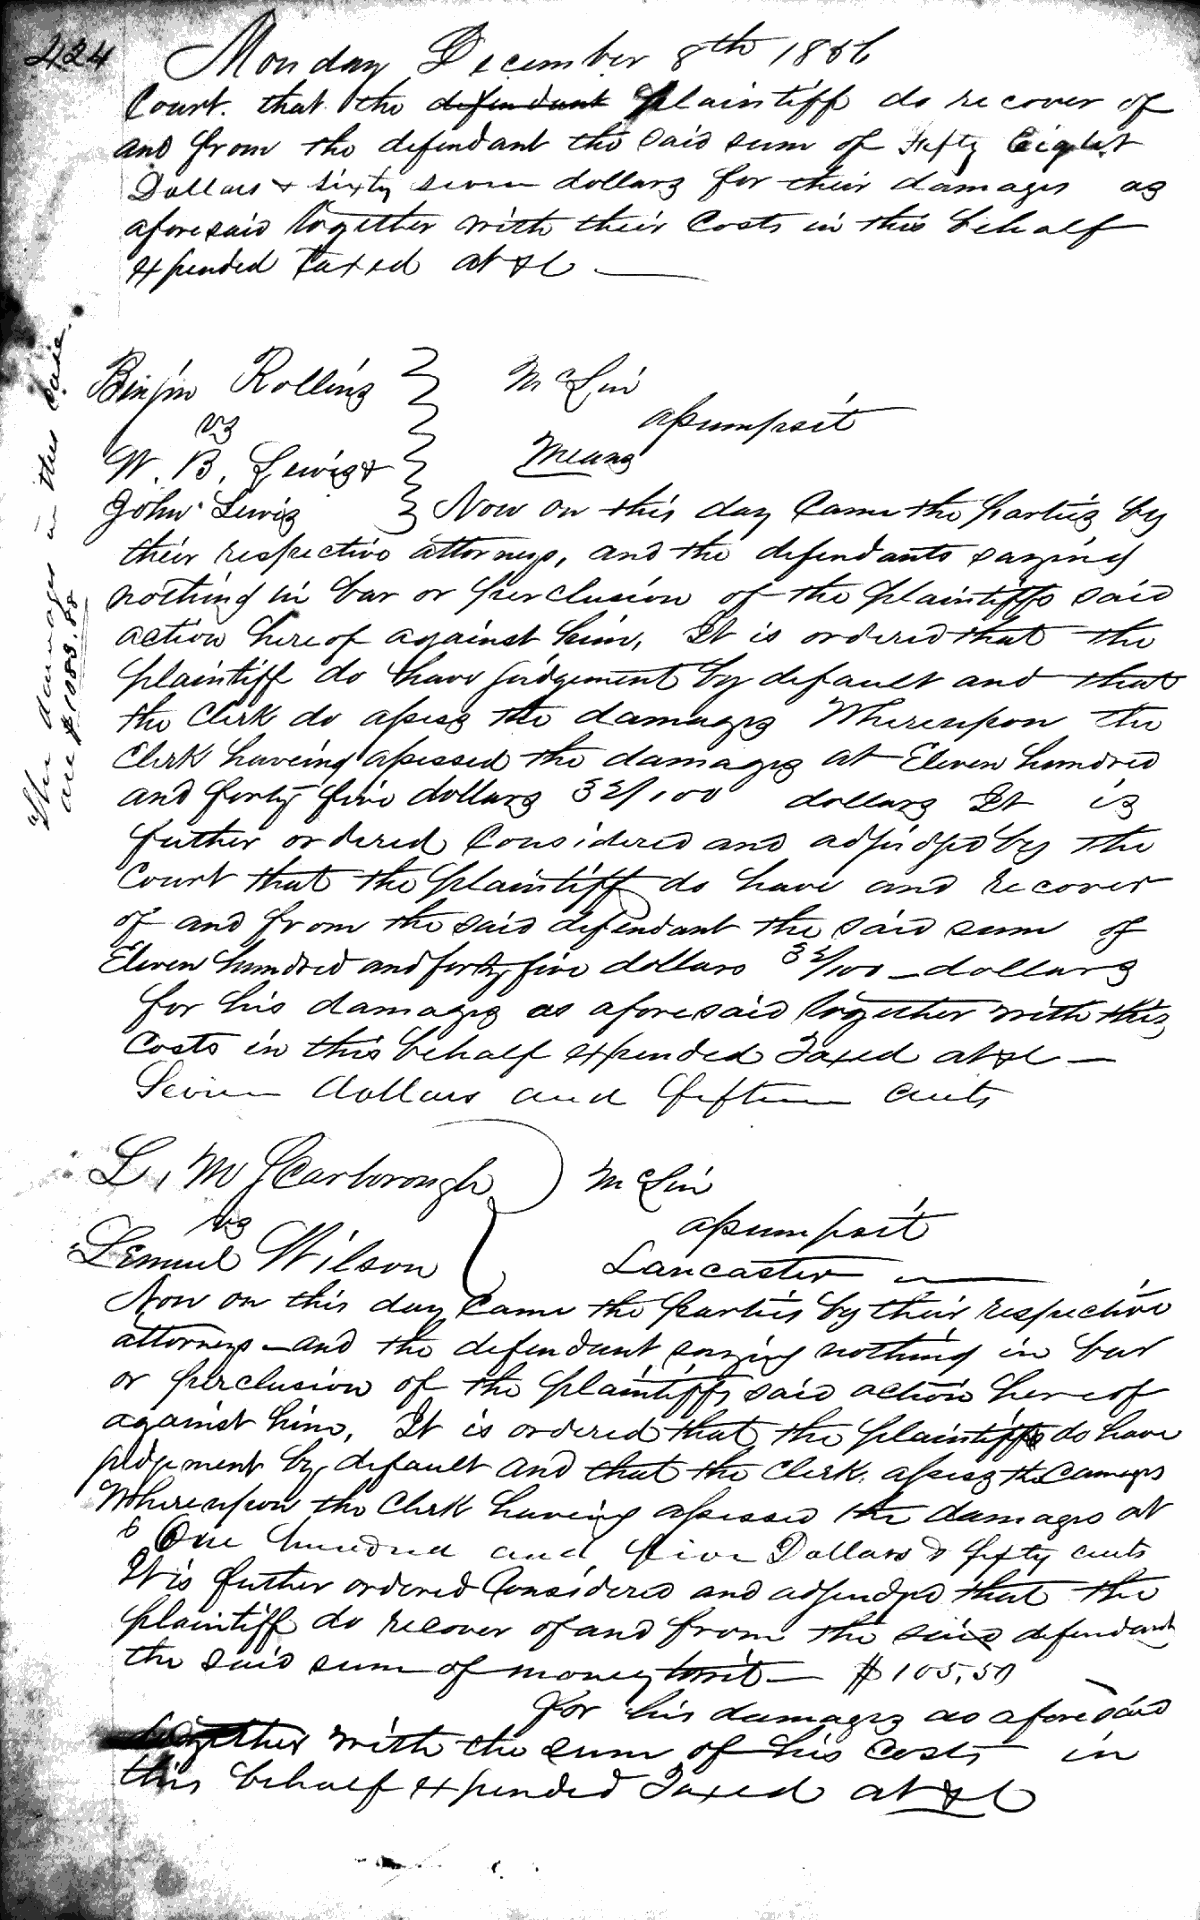 424 Monday December 8th 1856
Court. that the defendant plaintiff do recover of
and from the defendant the said sum of Fifty Eight
Dollars & sixty seven dollars for their damages as
aforesaid together with their Costs in this behalf
expended taxed at &c
Binjm Rollins McLin
vs assumpsit
W. B. Lewis & Means
John Lewis Now on this day Came the parties by
their respective attorneys, and the defendants saying
nothing in bar or perclusion of the plaintiffs said
action hereof against him, It is ordered that the
plaintiff do have judgement by default and that
the Clerk do assess the damages Whereupon the
Clerk haveing assessed the damages at Eleven hundred
and forty five dollars 32/100 dollars It is
futher ordered Considered and adjudged by the
Court that the plaintiff do have and recover
of and from the said defendant the said sum of
Eleven hundred and forty five dollars 32/100 dollars
for his damages as aforesaid together with this
Costs in this behalf expended Taxed at &c
Seven dollars and fifteen cents
"The damages in this case
are $1083.88
L. M Scarborough McLin
vs assumpsit
Lemuel Wilson Lancaster
Now on this day Came the parties by their respective
attorneys and the defendant saying nothing in bar
or perclusion of the plaintiffs said action hereof
against him, It is ordered that the plaintiff do have
judgement by default and that the Clerk assess the damages
Whereupon the Clerk having assessed the damages at
One hundred and five Dollars & fifty cents
It is futher ordered Considered and adjudged that the
plaintiff do recover of and from the said defendant
the said sum of money to wit $105.50
for his damages as aforesaid
together with the sum of his Costs in
this behalf expended Taxed at &c